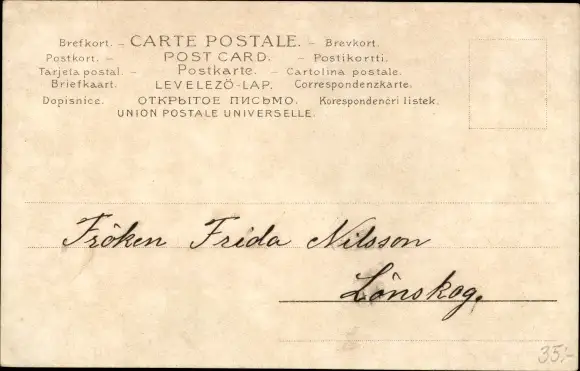 Brefkort. – CARTE POSTALE. – Brevkort.
Postkort. – POST CARD. – Postikortti.
Tarjeta postal. – Postkarte. – Cartolina postale.
Briefkaart. LEVELEZŐ-LAP. Correspondenzkarte.
Dopisnice. ОТКРЫТОЕ ПИСЬМО. Korespondenčri listek.
UNION POSTALE UNIVERSELLE.
Fröken Frida Nilsson
Lönskog.
35:-